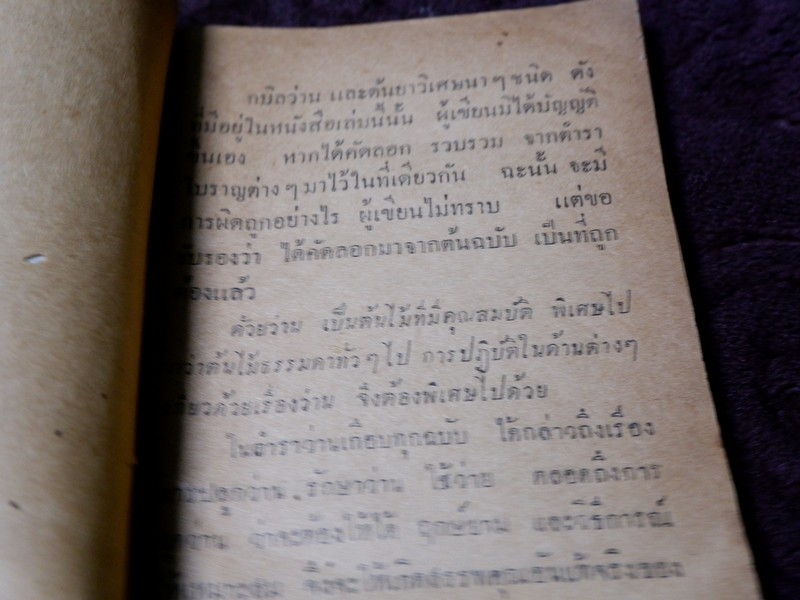 กบิลว่าน และต้นยาวิเศษนาๆชนิด ดัง
ที่มีอยู่ในหนังสือเล่มนี้นั้น ผู้เขียนมิได้บัญญัติ
ขึ้นเอง หากได้คัดลอก รวบรวม จากตำรา
โบราญต่างๆมาไว้ในที่เดียวกัน ฉะนั้น จะมี
การผิดถูกอย่างไร ผู้เขียนไม่ทราบ แต่ขอ
รับรองว่า ได้คัดลอกมาจากต้นฉบับ เป็นที่ถูก
ต้องแล้ว
ด้วยว่าน เป็นต้นไม้ที่มีคุณสมบัติ พิเศษไป
กว่าต้นไม้ธรรมดาทั่วๆไป การปฏิบัติในด้านต่างๆ
เกี่ยวด้วยเรื่องว่าน จึงต้องพิเศษไปด้วย
ในตำราว่านเกือบทุกฉบับ ได้กล่าวถึงเรื่อง
การปลูกว่าน รักษาว่าน ใช้ว่าน ตลอดถึงการ
ว่าน ว่าจะต้องให้ได้ ฤกษ์ยาม และวิธีการณ์